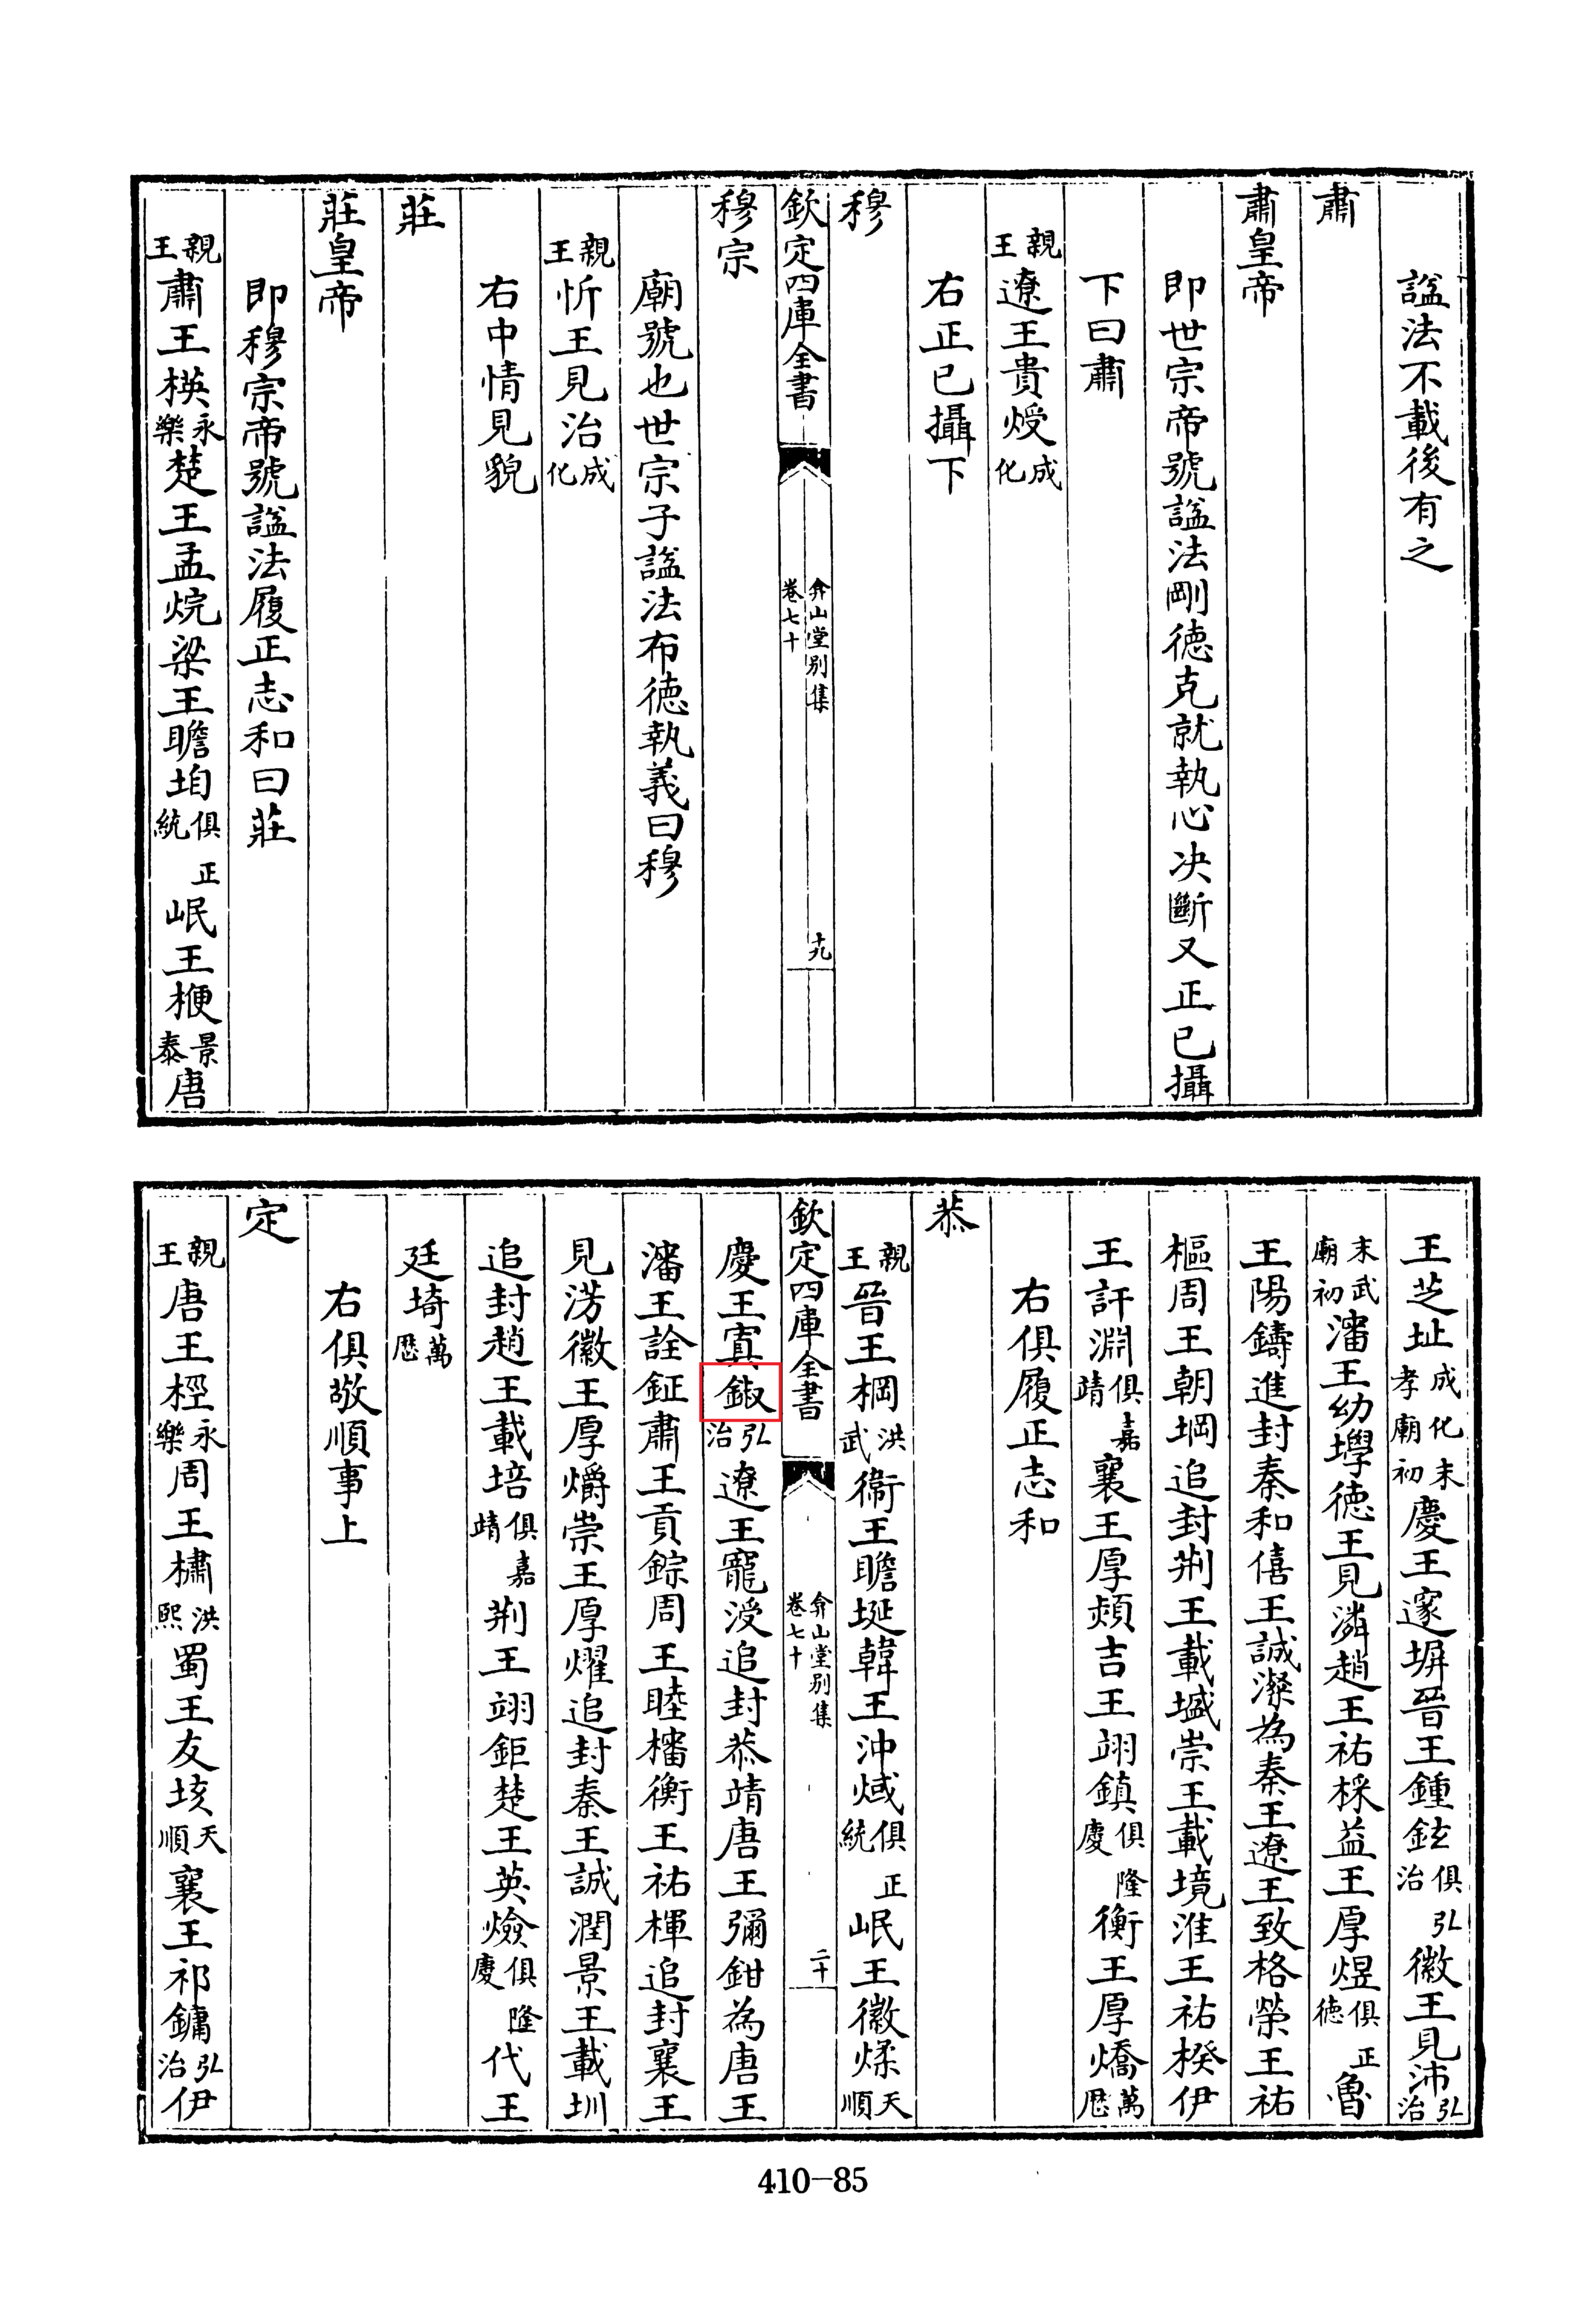 諡法不載後有之
肅
肅皇帝
即世宗帝號諡法剛德克就執心决斷又正已攝
下曰肅
親王遼王貴㷞成化
右正已攝下
穆
欽定四庫全書
弇山堂别集
卷七十
十九
穆宗
廟號也世宗子諡法布德執義曰穆
親王忻王見治成化
右中情見貌
莊
莊皇帝
即穆宗帝號諡法履正志和曰莊
親王肅王楧永樂楚王孟烷梁王瞻垍俱正統岷王楩景泰唐
王芝址成化末孝廟初慶王邃塀晉王鍾鉉俱弘治徽王見沛弘治
末武廟初瀋王幼㙾德王見潾趙王祐棌益王厚煜俱正德魯
王陽鑄進封秦和僖王誠澯為秦王遼王致格榮王祐
樞周王朝堈追封荆王載墭崇王載境淮王祐楑伊
王訏淵俱嘉靖襄王厚熲吉王翊鎮俱隆慶衡王厚燆萬厯
右俱履正志和
恭
親王晉王棡洪武衛王瞻埏韓王沖𤊨俱正統岷王徽煣天順
欽定四庫全書
弇山堂别集
卷七十
二十
慶王寘錖弘治遼王寵涭追封恭靖唐王彌鉗為唐王
瀋王詮鉦肅王貢錝周王睦㰂衡王祐楎追封襄王
見淓徽王厚爝崇王厚燿追封秦王誠潤景王載圳
追封趙王載培俱嘉靖荆王翊鉅楚王英㷿俱隆慶代王
廷埼萬厯
右俱敬順事上
定
親王唐王桱永樂周王橚洪熙蜀王友垓天順襄王祁鏞弘治伊
410-85